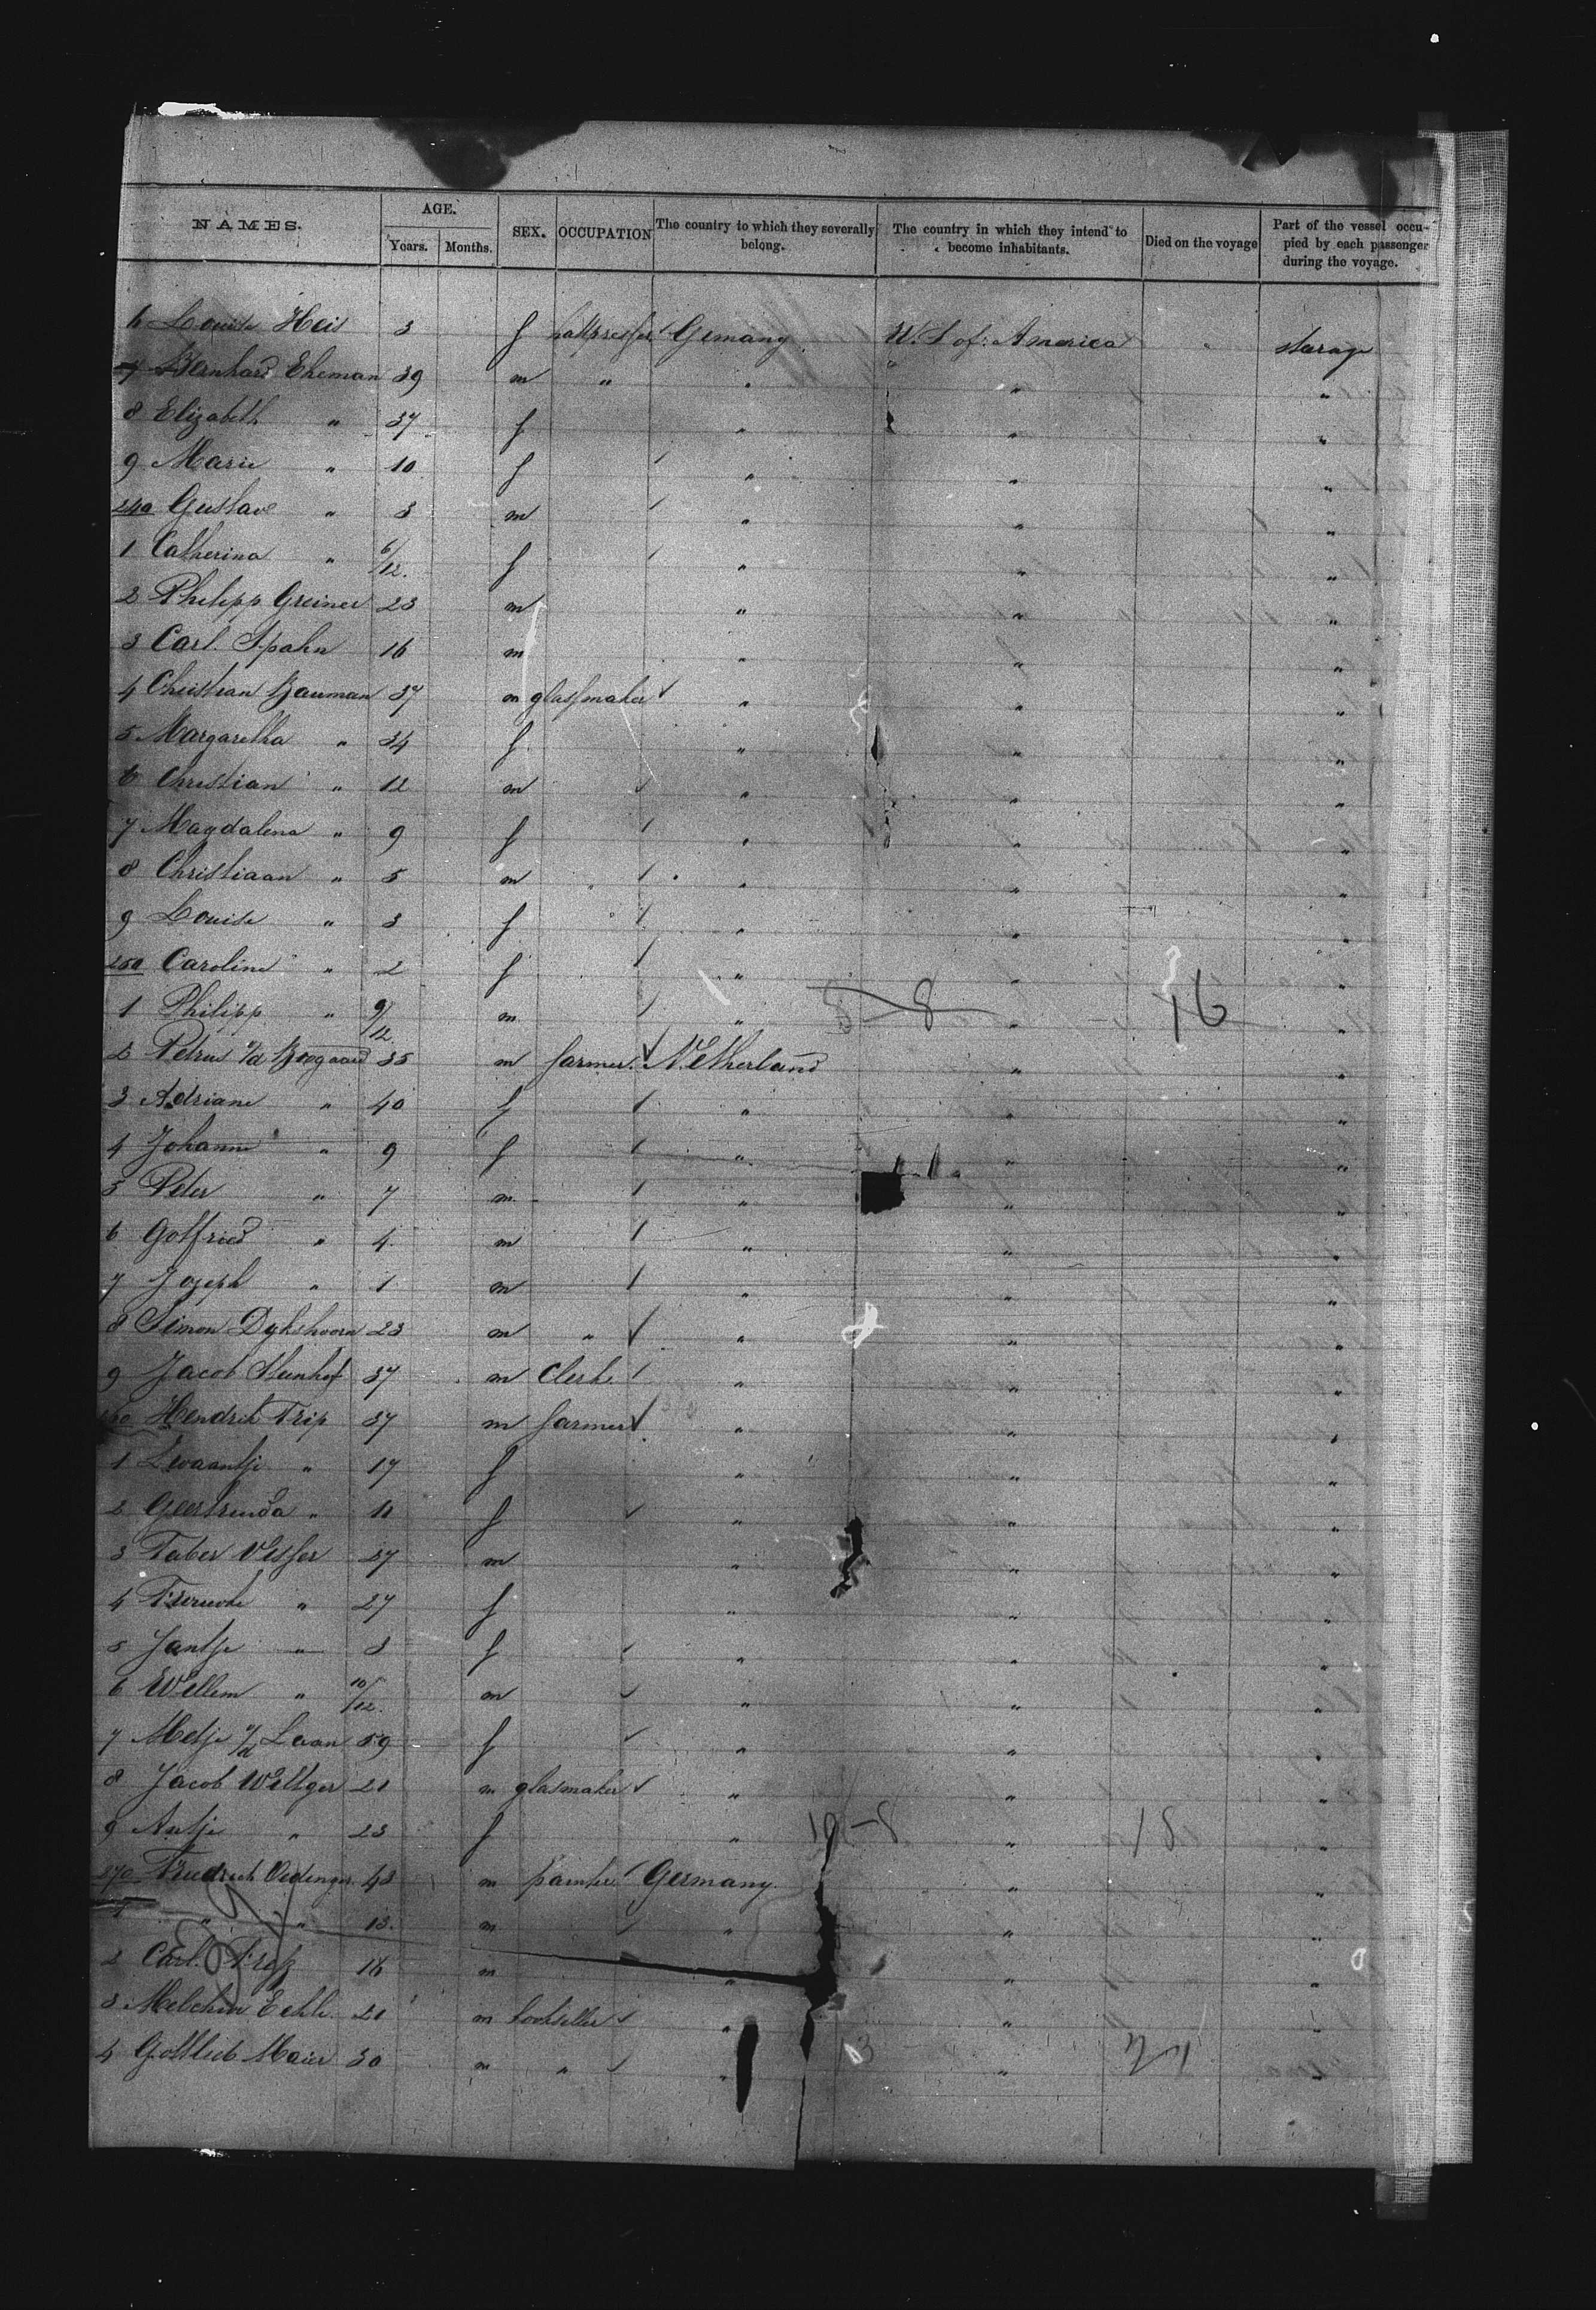 NAMES. AGE. Years. Months. SEX. OCCUPATION The country to which they severally belong. The country in which they intend to become inhabitants. Died on the voyage Part of the vessel occupied by each passenger during the voyage.
6 Louise Heis 3 f Gemany U. S of: America
7 Bernhard Eheman 39 m " " " " "
8 Elizabeth " 37 f " " "
9 Marie " 10 f " " "
240 Gustave " 3 m " " "
1 Catherina " 6/12. f " " "
2 Philipp Greiner 23 m " " "
3 Carl. Spahn 16 m " " "
4 Christian Bauman 37 m glassmaker " " "
5 Margaretha " 34 f " " "
6 Christian " 12 m " " "
7 Magdalena " 9 f " " "
8 Christiaan " 5 m " " " "
9 Louise " 3 f " " "
250 Caroline " 2 f " " "
1 Philipp " 9/12 m " 8 " 16 "
2 Petrus v/d Boogaard 35 m farmer. Netherland " "
3 Adriane " 40 f " " "
4 Johanna " 9 f " " "
5 Peter " 7 m " " "
6 Gotfried " 4 m " " "
7 Jozeph " 1 m " " "
8 Simon Dykshoorn 23 m " " " "
9 Jacob 37 m Clerk " " "
Hendrik Trip 37 m farmer " " "
1 " 17 f " " "
2 Geertruida " 11 f " " "
3 Visser 37 m " " "
4 " 27 f " " "
5 Jantje " 3 f " " "
6 Willem " 10/12. m " " "
7 Metje v/d Laan 59 f " " "
8 Jacob Wiltger 21 m glasmaker " " "
9 Antje " 23 f " 10-8 " 18 "
270 Friedrich 43 m painter Germany. " "
1 " " 13. m " " "
2 Carl. 16 m " " "
3 21 m " " "
4 Gottlieb Maier 30 m " " 3 " 21 "